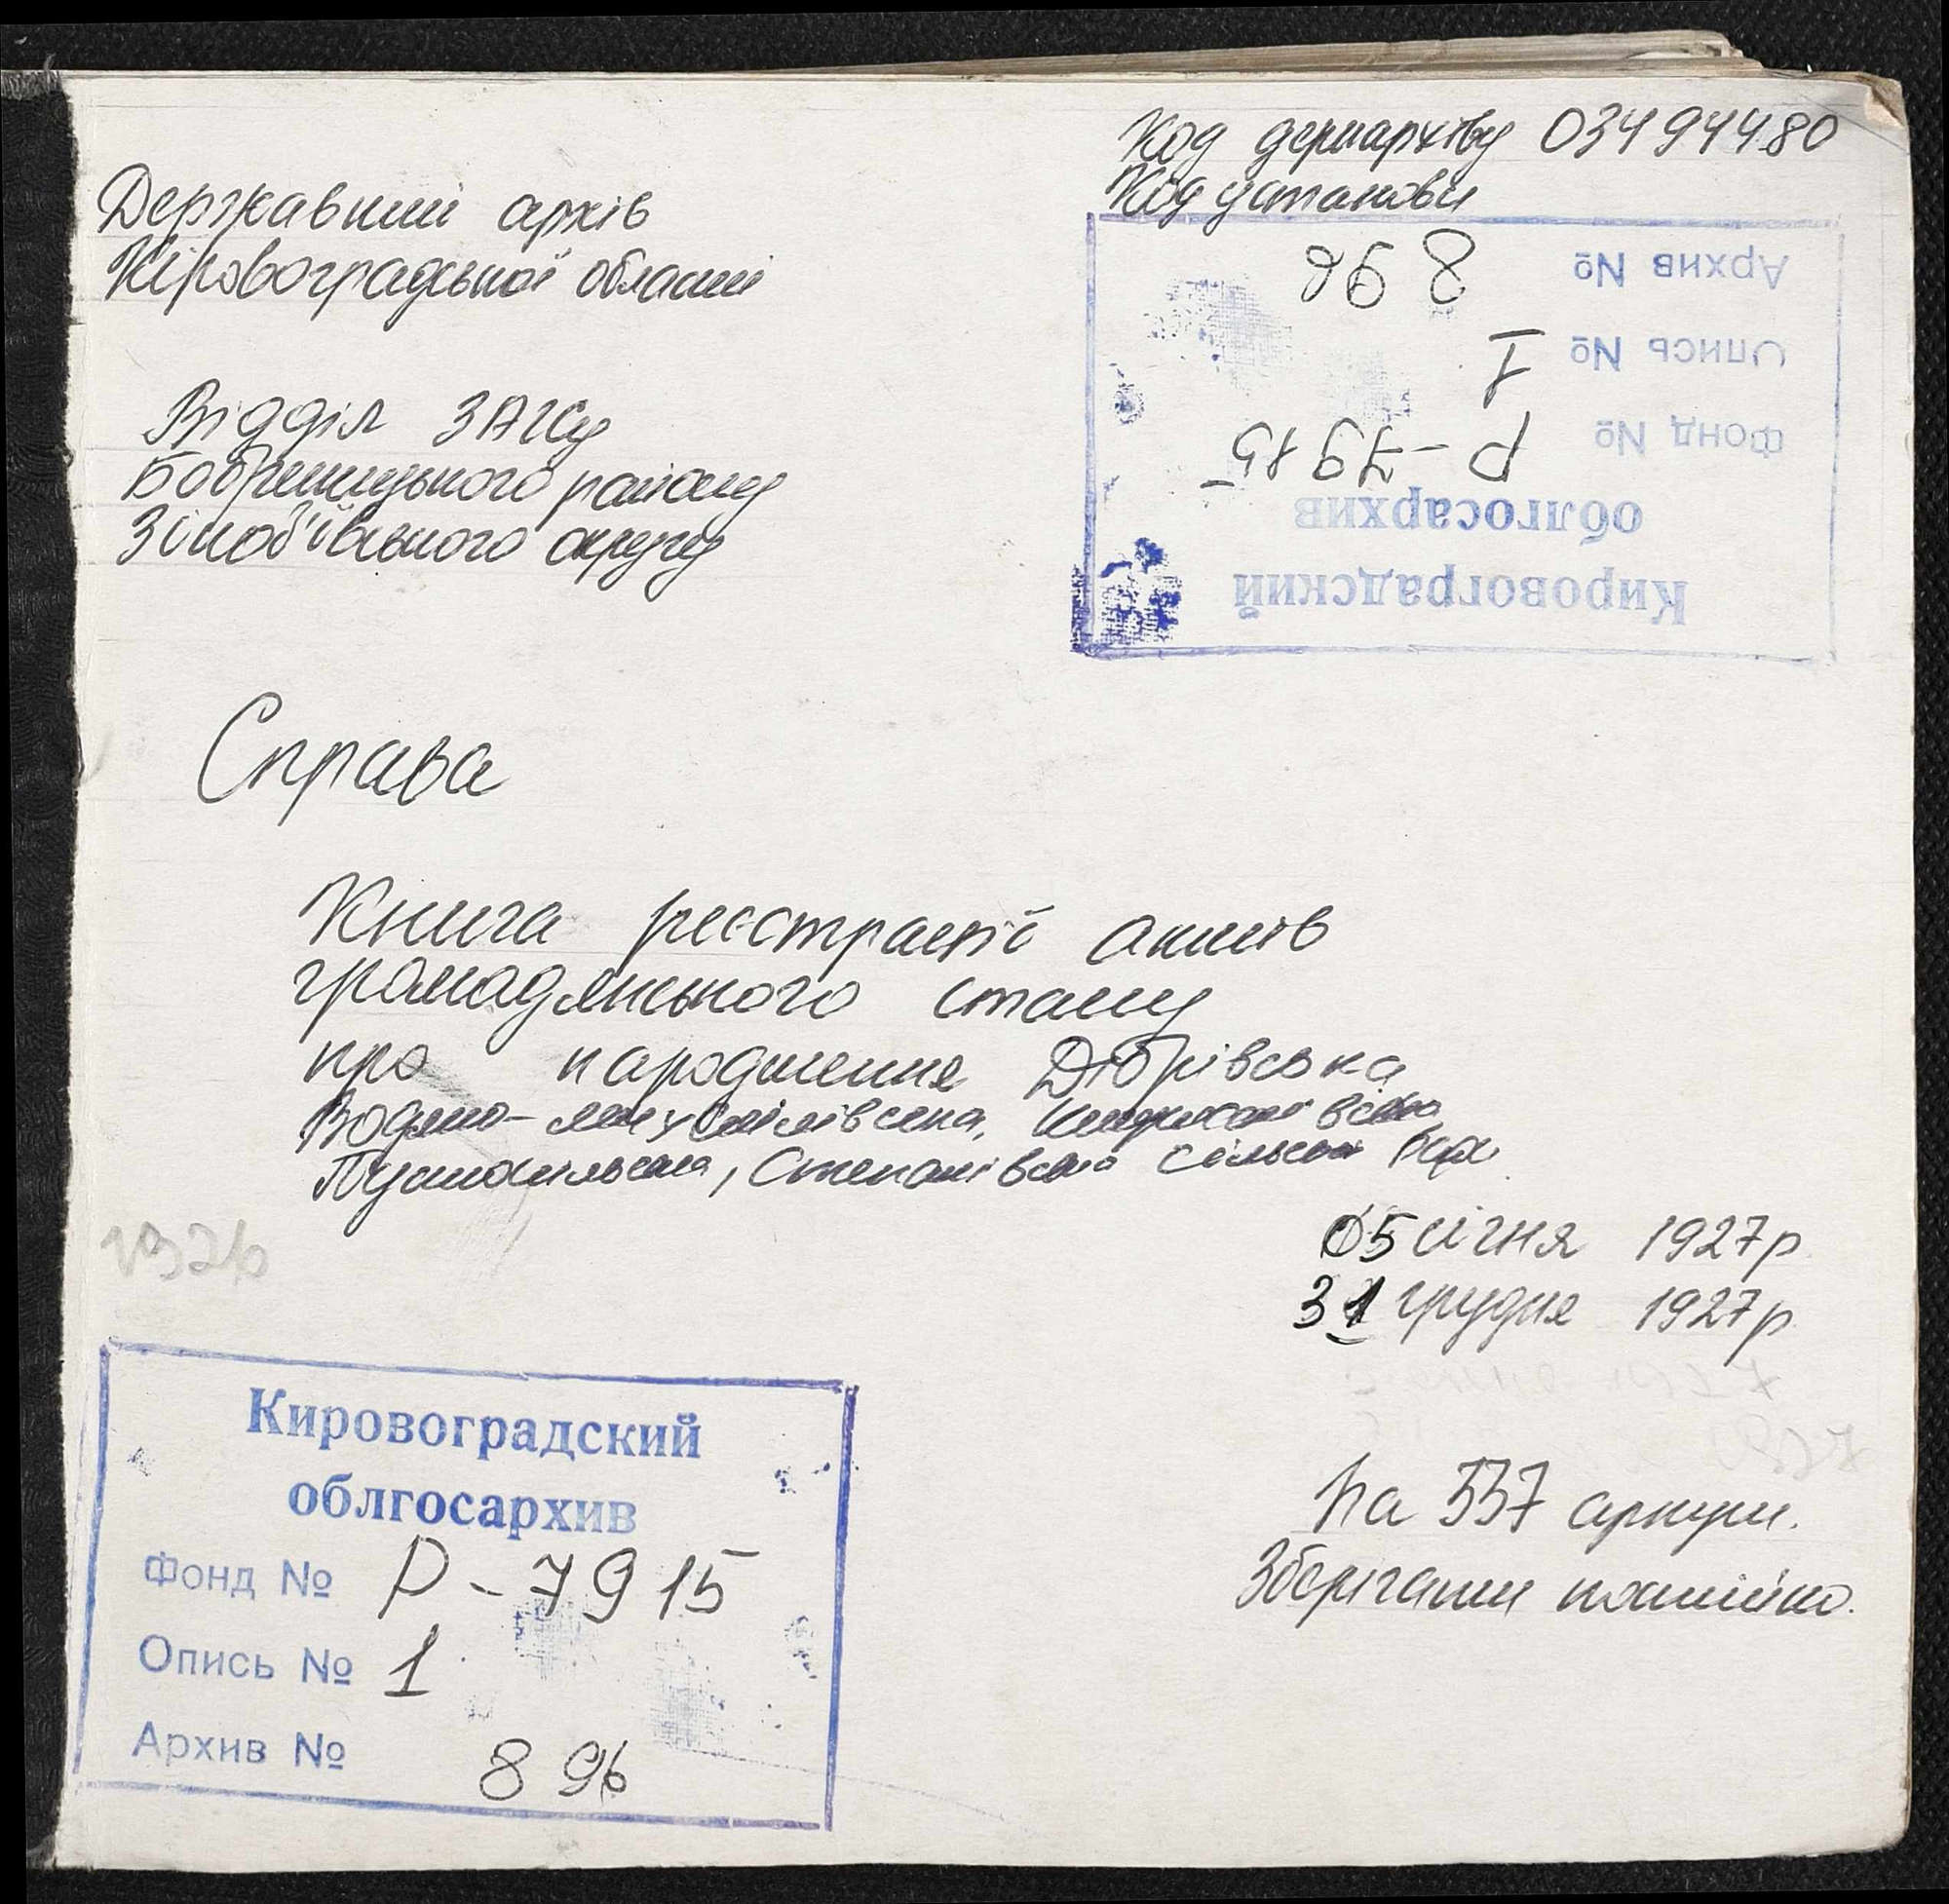 Код держархіву 03494480
Код установи
Державний архів
Кіровоградської області
Архив № 896
Опись № 1
Фонд № Р-7915
облгосархив
Кировоградский
Відділ ЗАГСу
Бобринецького району
Зінов'ївського округу
Справа
Книга реєстрації актів
громадянського стану
про народження Дібрівська
Водяно-
Степанівська сільські ради
05 січня 1927р
31 грудня 1927р
На 537 аркуш.
Зберігати постійно.
Кировоградский
облгосархив
Фонд № Р-7915
Опись № 1
Архив № 896